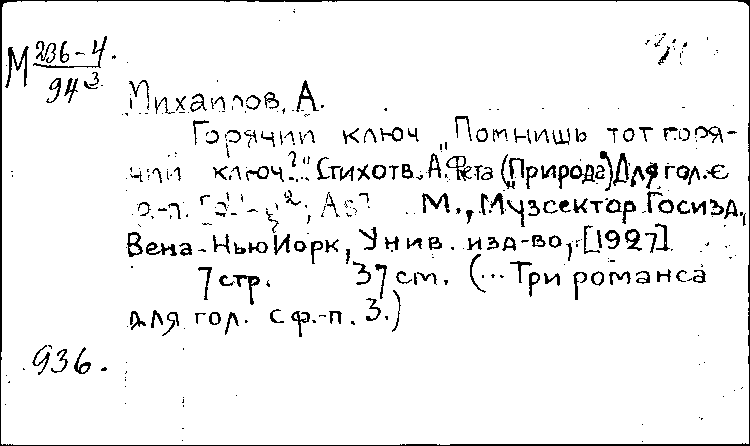 М 236-4.
94 3
Михайлов, А.
Горячий ключ „Помнишь тот горя-
чий ключ?.." Стихотв. А. Фета („Природа") Для гол. с
ф.-п. М., Музсектор Госизд.,
Вена-НьюИорк, Унив. изд-во, [1927]
7 стр. 37 см. (... Три романса
для гол. с ф.-п. 3.)
936.